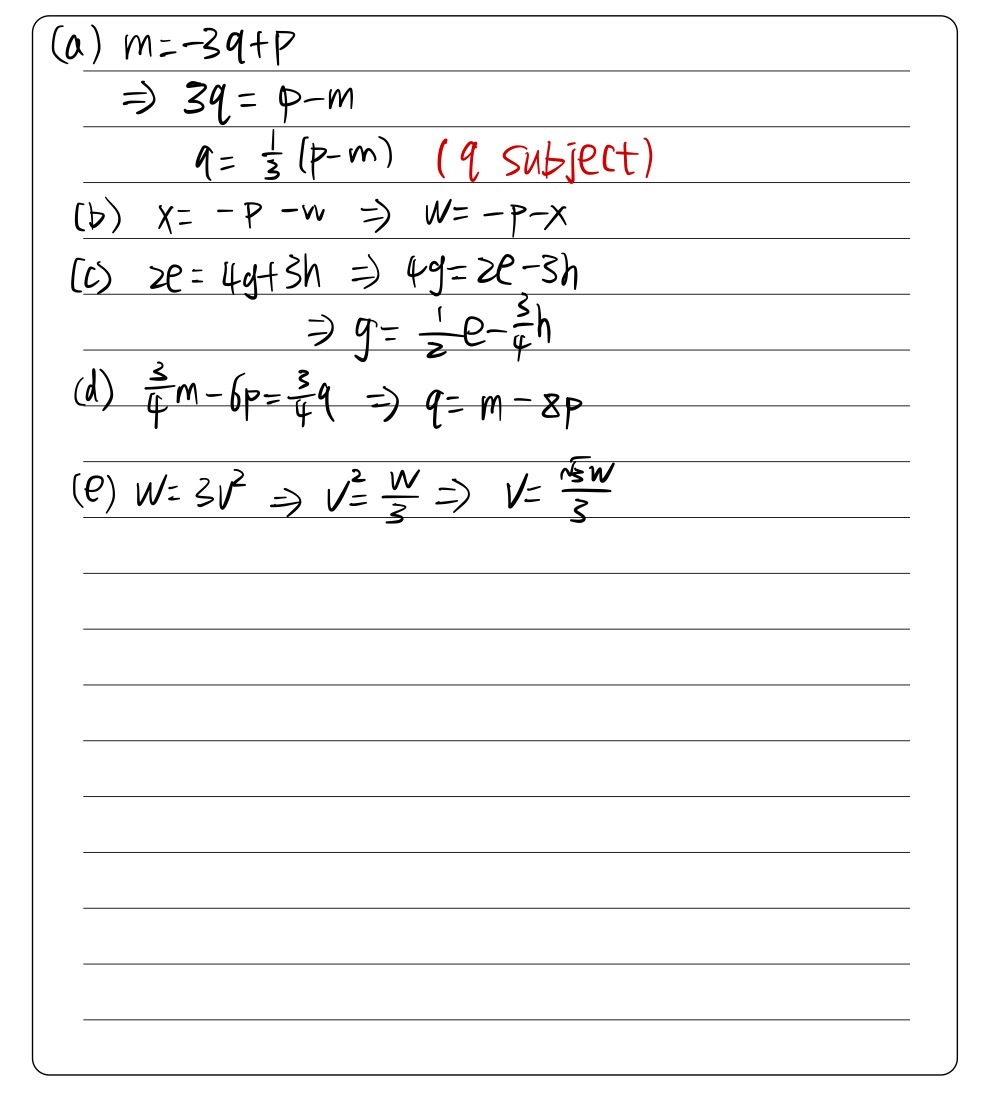 (a) m=-3q+p
⇒ 3q= p-m
q= 1/3 (p-m) (q subject)
(b) x= -p -w ⇒ w= -p-x
(c) 2e= 4g+3h ⇒ 4g=2e-3h
⇒ g= 1/2 e- 3/4 h
(d) 3/4 m-6p= 3/4 q ⇒ q= m-8p
(e) W= 3V² ⇒ V²= W/3 ⇒ V= √3W/3